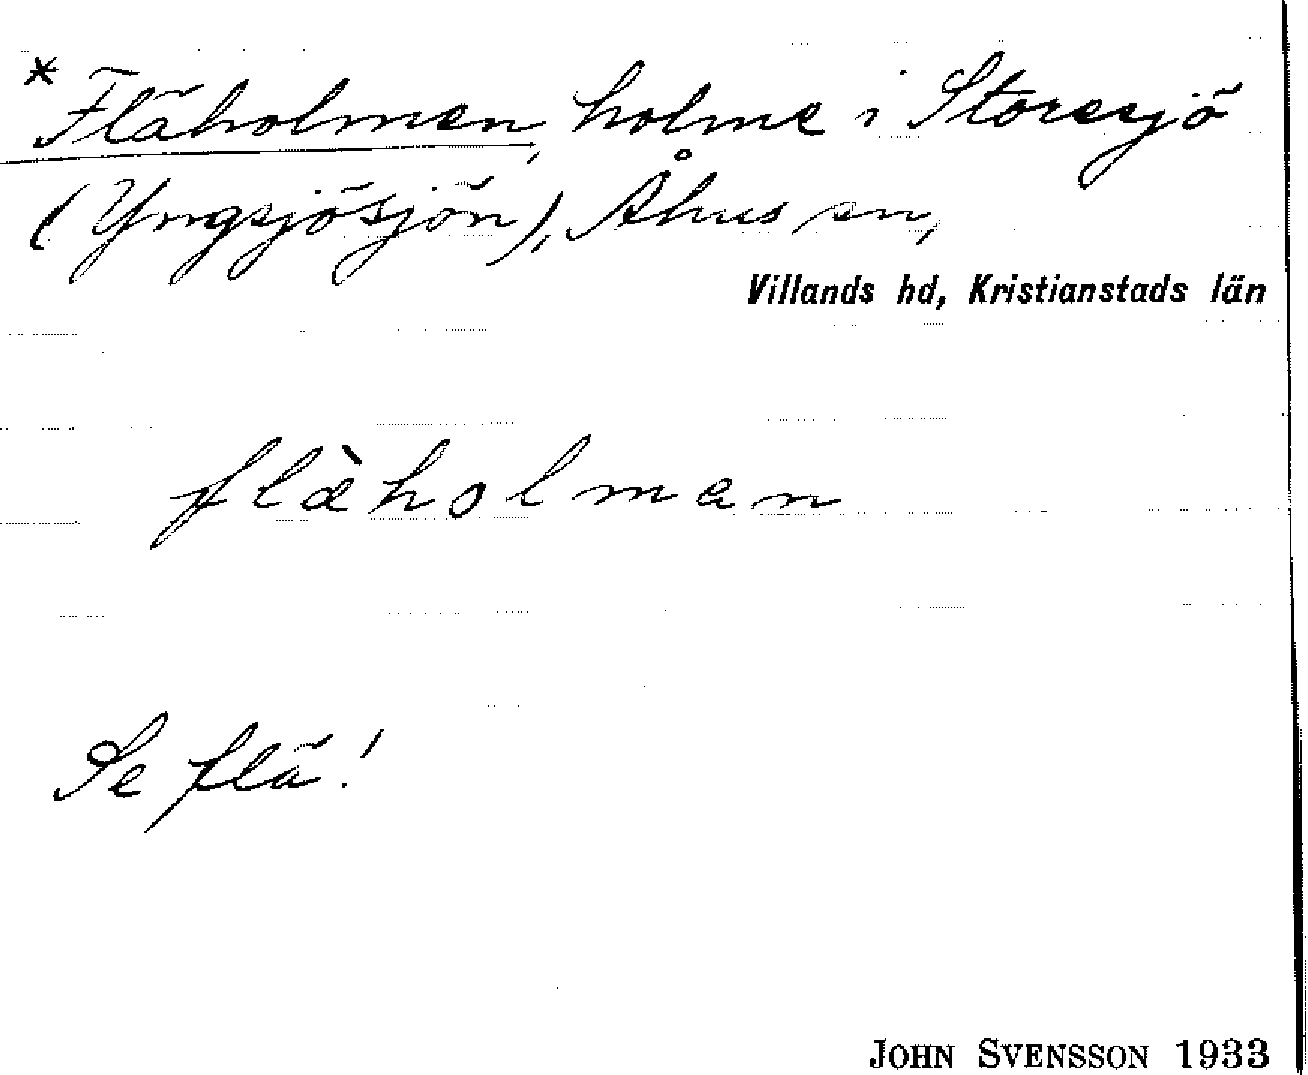 * Fläholmen, holme i Storesjö
(Yngsjösjön), Åhus sn,
Villands hd, Kristianstads län
flæ̀holmen
Se flä!
JOHN SVENSSON 1933